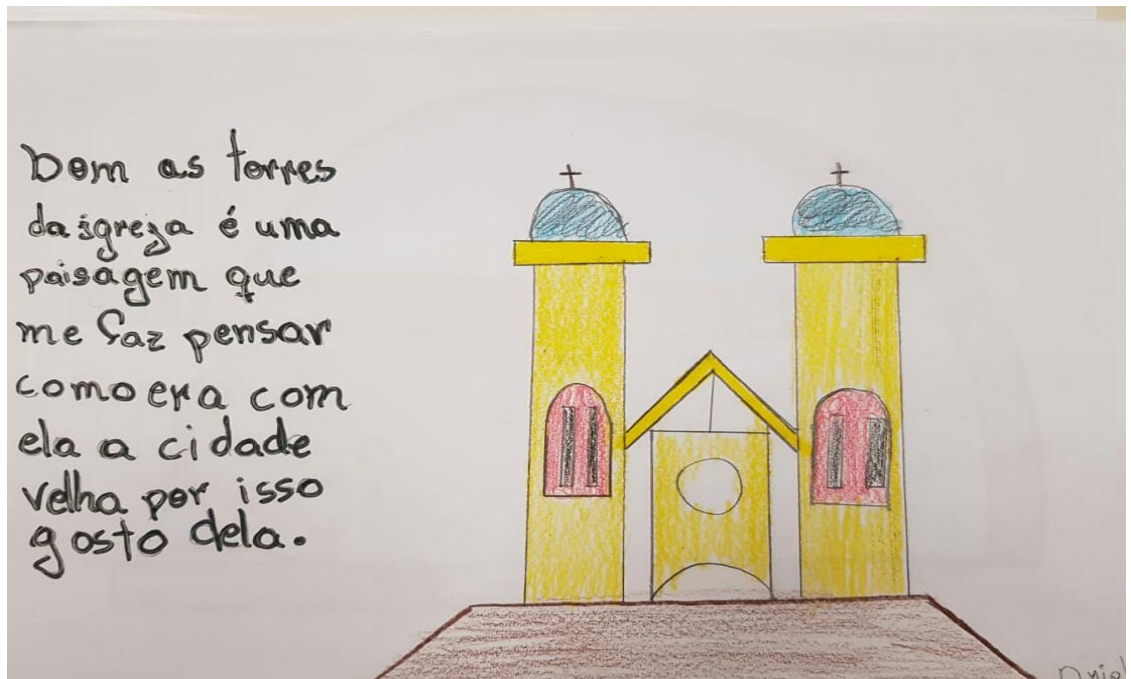 bom as torres
da igreja é uma
paisagem que
me faz pensar
como era com
ela a cidade
velha por isso
gosto dela.